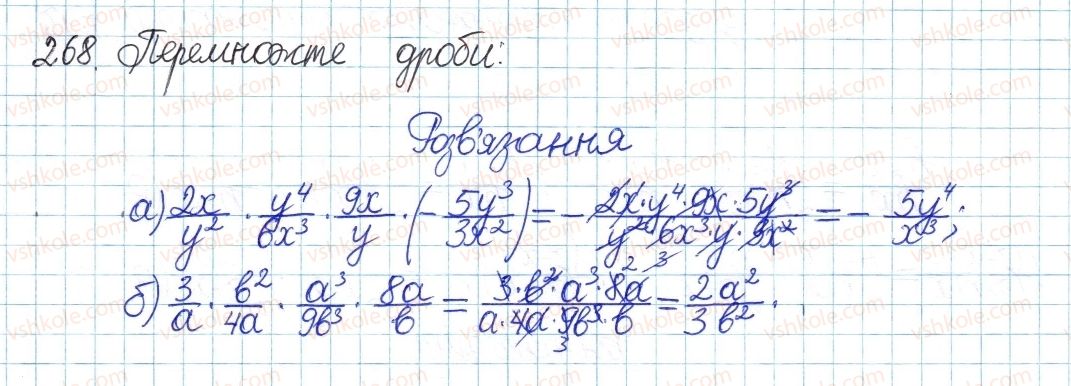 268. Перемножте дроби:
Розв'язання
а) 2x/y² · y⁴/6x³ · 9x/y · (− 5y³/3x²) = − 2x·y⁴·9x·5y³/y²·6x³·y·3x² = − 5y⁴/x³;
б) 3/a · b²/4a · a³/9b³ · 8a/b = 3·b²·a³·8a/a·4a·9b³·b = 2a²/3b².